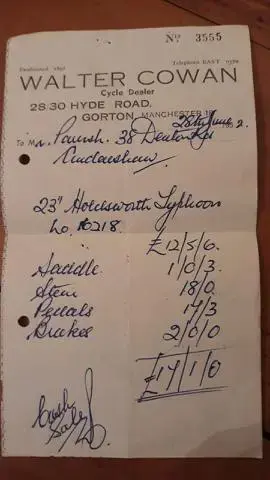 Nº 3555
Established 1890 Telephone EAST 0370
WALTER COWAN
Cycle Dealer
28/30 HYDE ROAD,
GORTON, MANCHESTER 18
28th June 1952.
To Mr. Parrish. 38 Denton Rd
Audenshaw.
23" Holdsworth Typhoon
No. 16218.
£12/5/6.
Saddle. 1/0/3.
Stem 18/0
Pedals 17/3
Brakes 2/0/0
£17/1/0
Cash
Sale